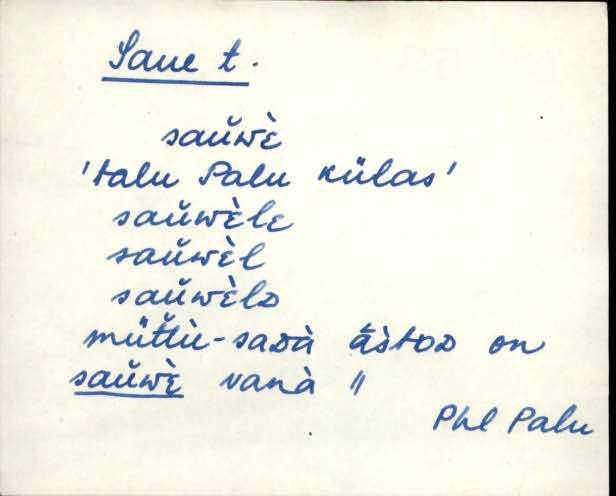 Saue t.
saŭwè
'talu Palu külas'
saŭwèle
saŭwèl
saŭwèlᴅ
müt̆lù-saᴅà āštoᴅ on
saŭwè vanà "
Phl Palu